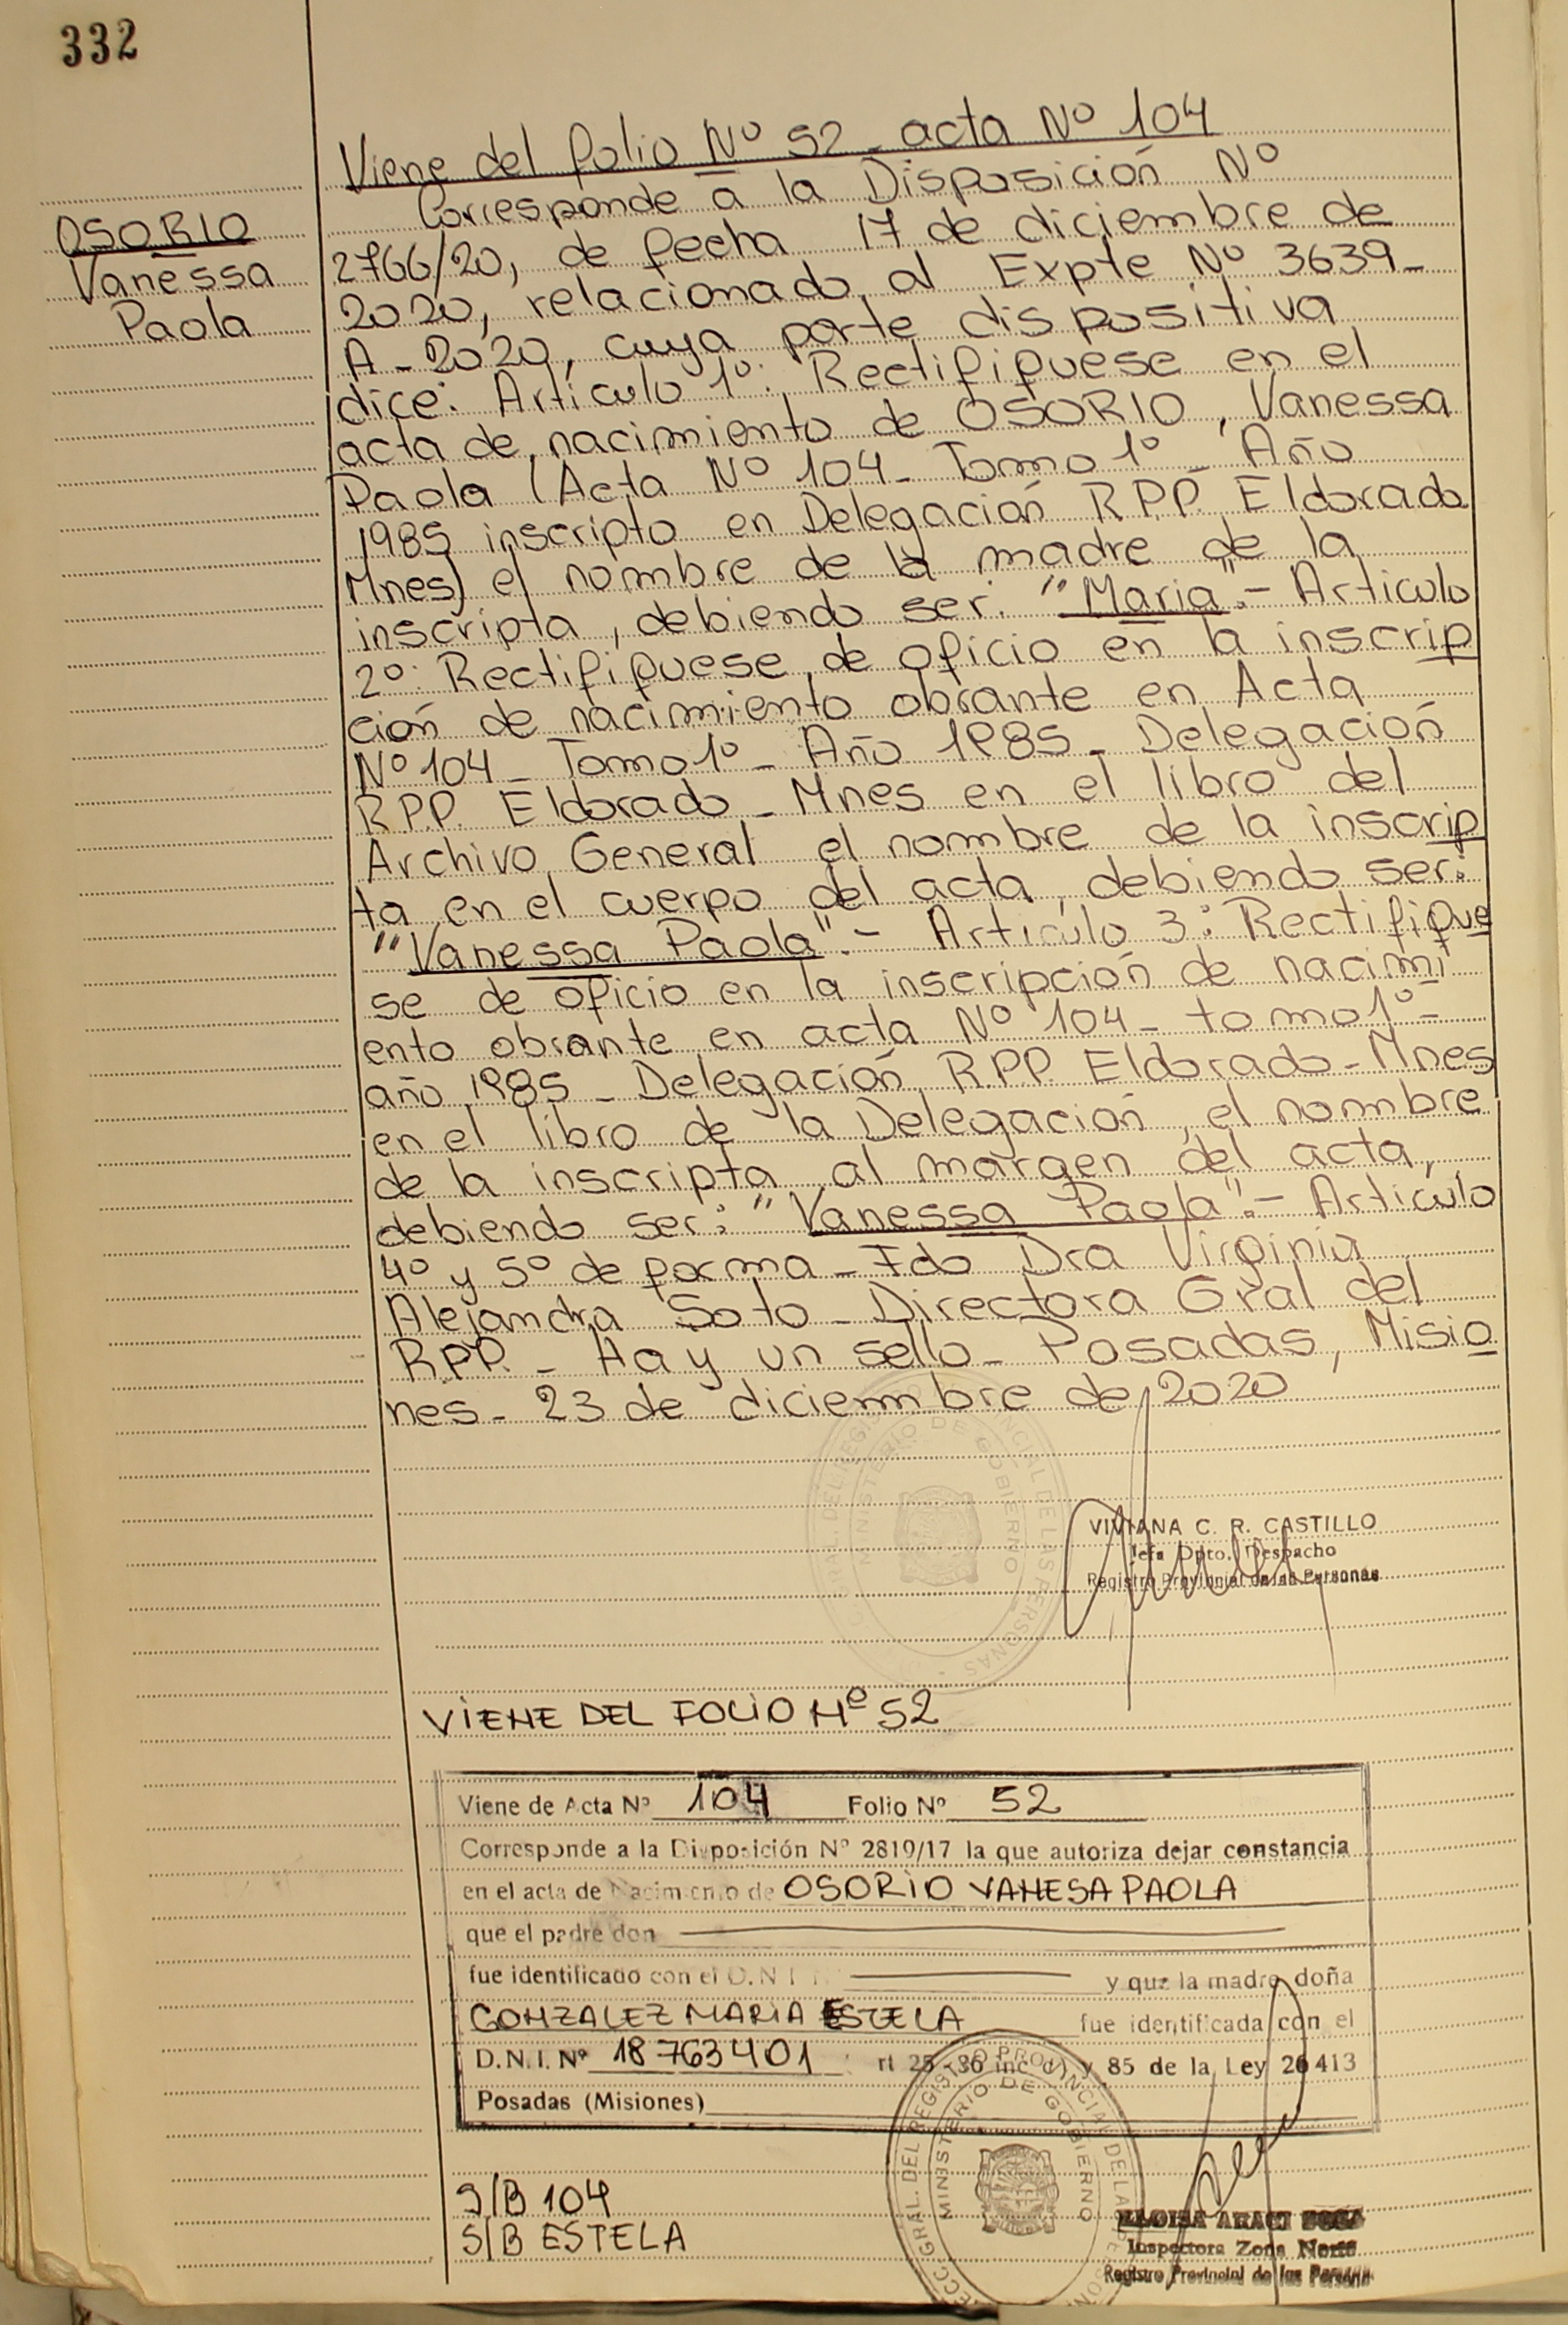 332
OSORIO
Vanessa
Paola
Viene del folio Nº 52 - acta Nº 104
Corresponde a la Disposición Nº
2766/20, de fecha 17 de diciembre de
2020, relacionado al Expte Nº 3639-
A-2020, cuya parte dispositiva
dice: Artículo 1º: Rectifiquese en el
acta de nacimiento de OSORIO, Vanessa
Paola (Acta Nº 104- Tomo 1º - Año
1985 inscripto en Delegación R.P.P. Eldorado
Mnes) el nombre de la madre de la
inscripta, debiendo ser: "Maria".- Articulo
2º: Rectifiquese de oficio en la inscrip
ción de nacimiento obrante en Acta
Nº 104- Tomo 1º - Año 1985- Delegación
R.P.P. Eldorado - Mnes en el libro del
Archivo General el nombre de la inscrip
ta en el cuerpo del acta, debiendo ser:
"Vanessa Paola".- Artículo 3: Rectifique
se de oficio en la inscripción de nacimi
ento obrante en acta Nº 104- tomo 1º-
año 1985 - Delegación R.P.P. Eldorado - Mnes
en el libro de la Delegación, el nombre
de la inscripta al margen del acta,
debiendo ser: "Vanessa Paola".- Artículo
4º y 5º de forma - Fdo Dra Virginia
Alejandra Soto - Directora Gral del
RPP. - Hay un sello - Posadas, Misio
nes - 23 de diciembre de 2020
VIVIANA C. R. CASTILLO
Jefa Dpto. Despacho
Registro Provincial de las Personas
VIENE DEL FOLIO Nº 52
Viene de Acta Nº 104 Folio Nº 52
Corresponde a la Disposición Nº 2819/17 la que autoriza dejar constancia
en el acta de Nacimiento de OSORIO VANESA PAOLA
que el padre don
fue identificado con el D.N.I. y que la madre doña
GONZALEZ MARIA ESTELA fue identificada con el
D.N.I. Nº 18763401 rt 25 - 36 inc d) y 85 de la Ley 26413
Posadas (Misiones)
S/B 104
S/B ESTELA
GRAL. DEL REGISTRO PROVINCIAL DE LAS
MINISTERIO DE GOBIERNO
Inspectora Zona Norte
Registro Provincial de las Personas